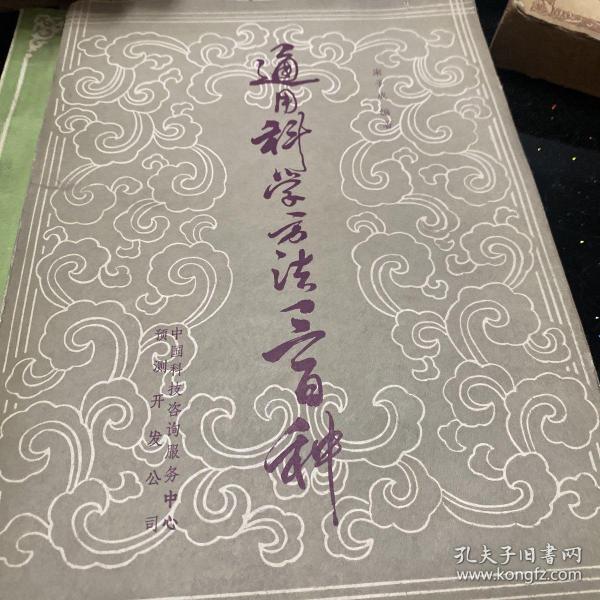 通用科学方法三百种
中国科技咨询服务中心
预测开发公司
孔夫子旧书网
www.kongfz.com